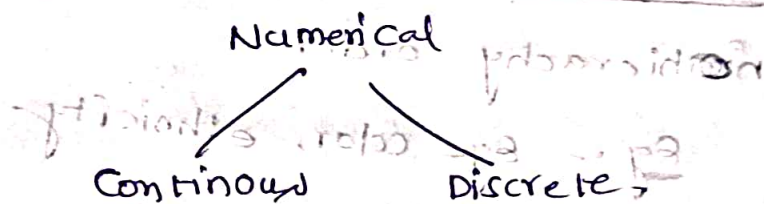 Numerical
Continous Discrete,